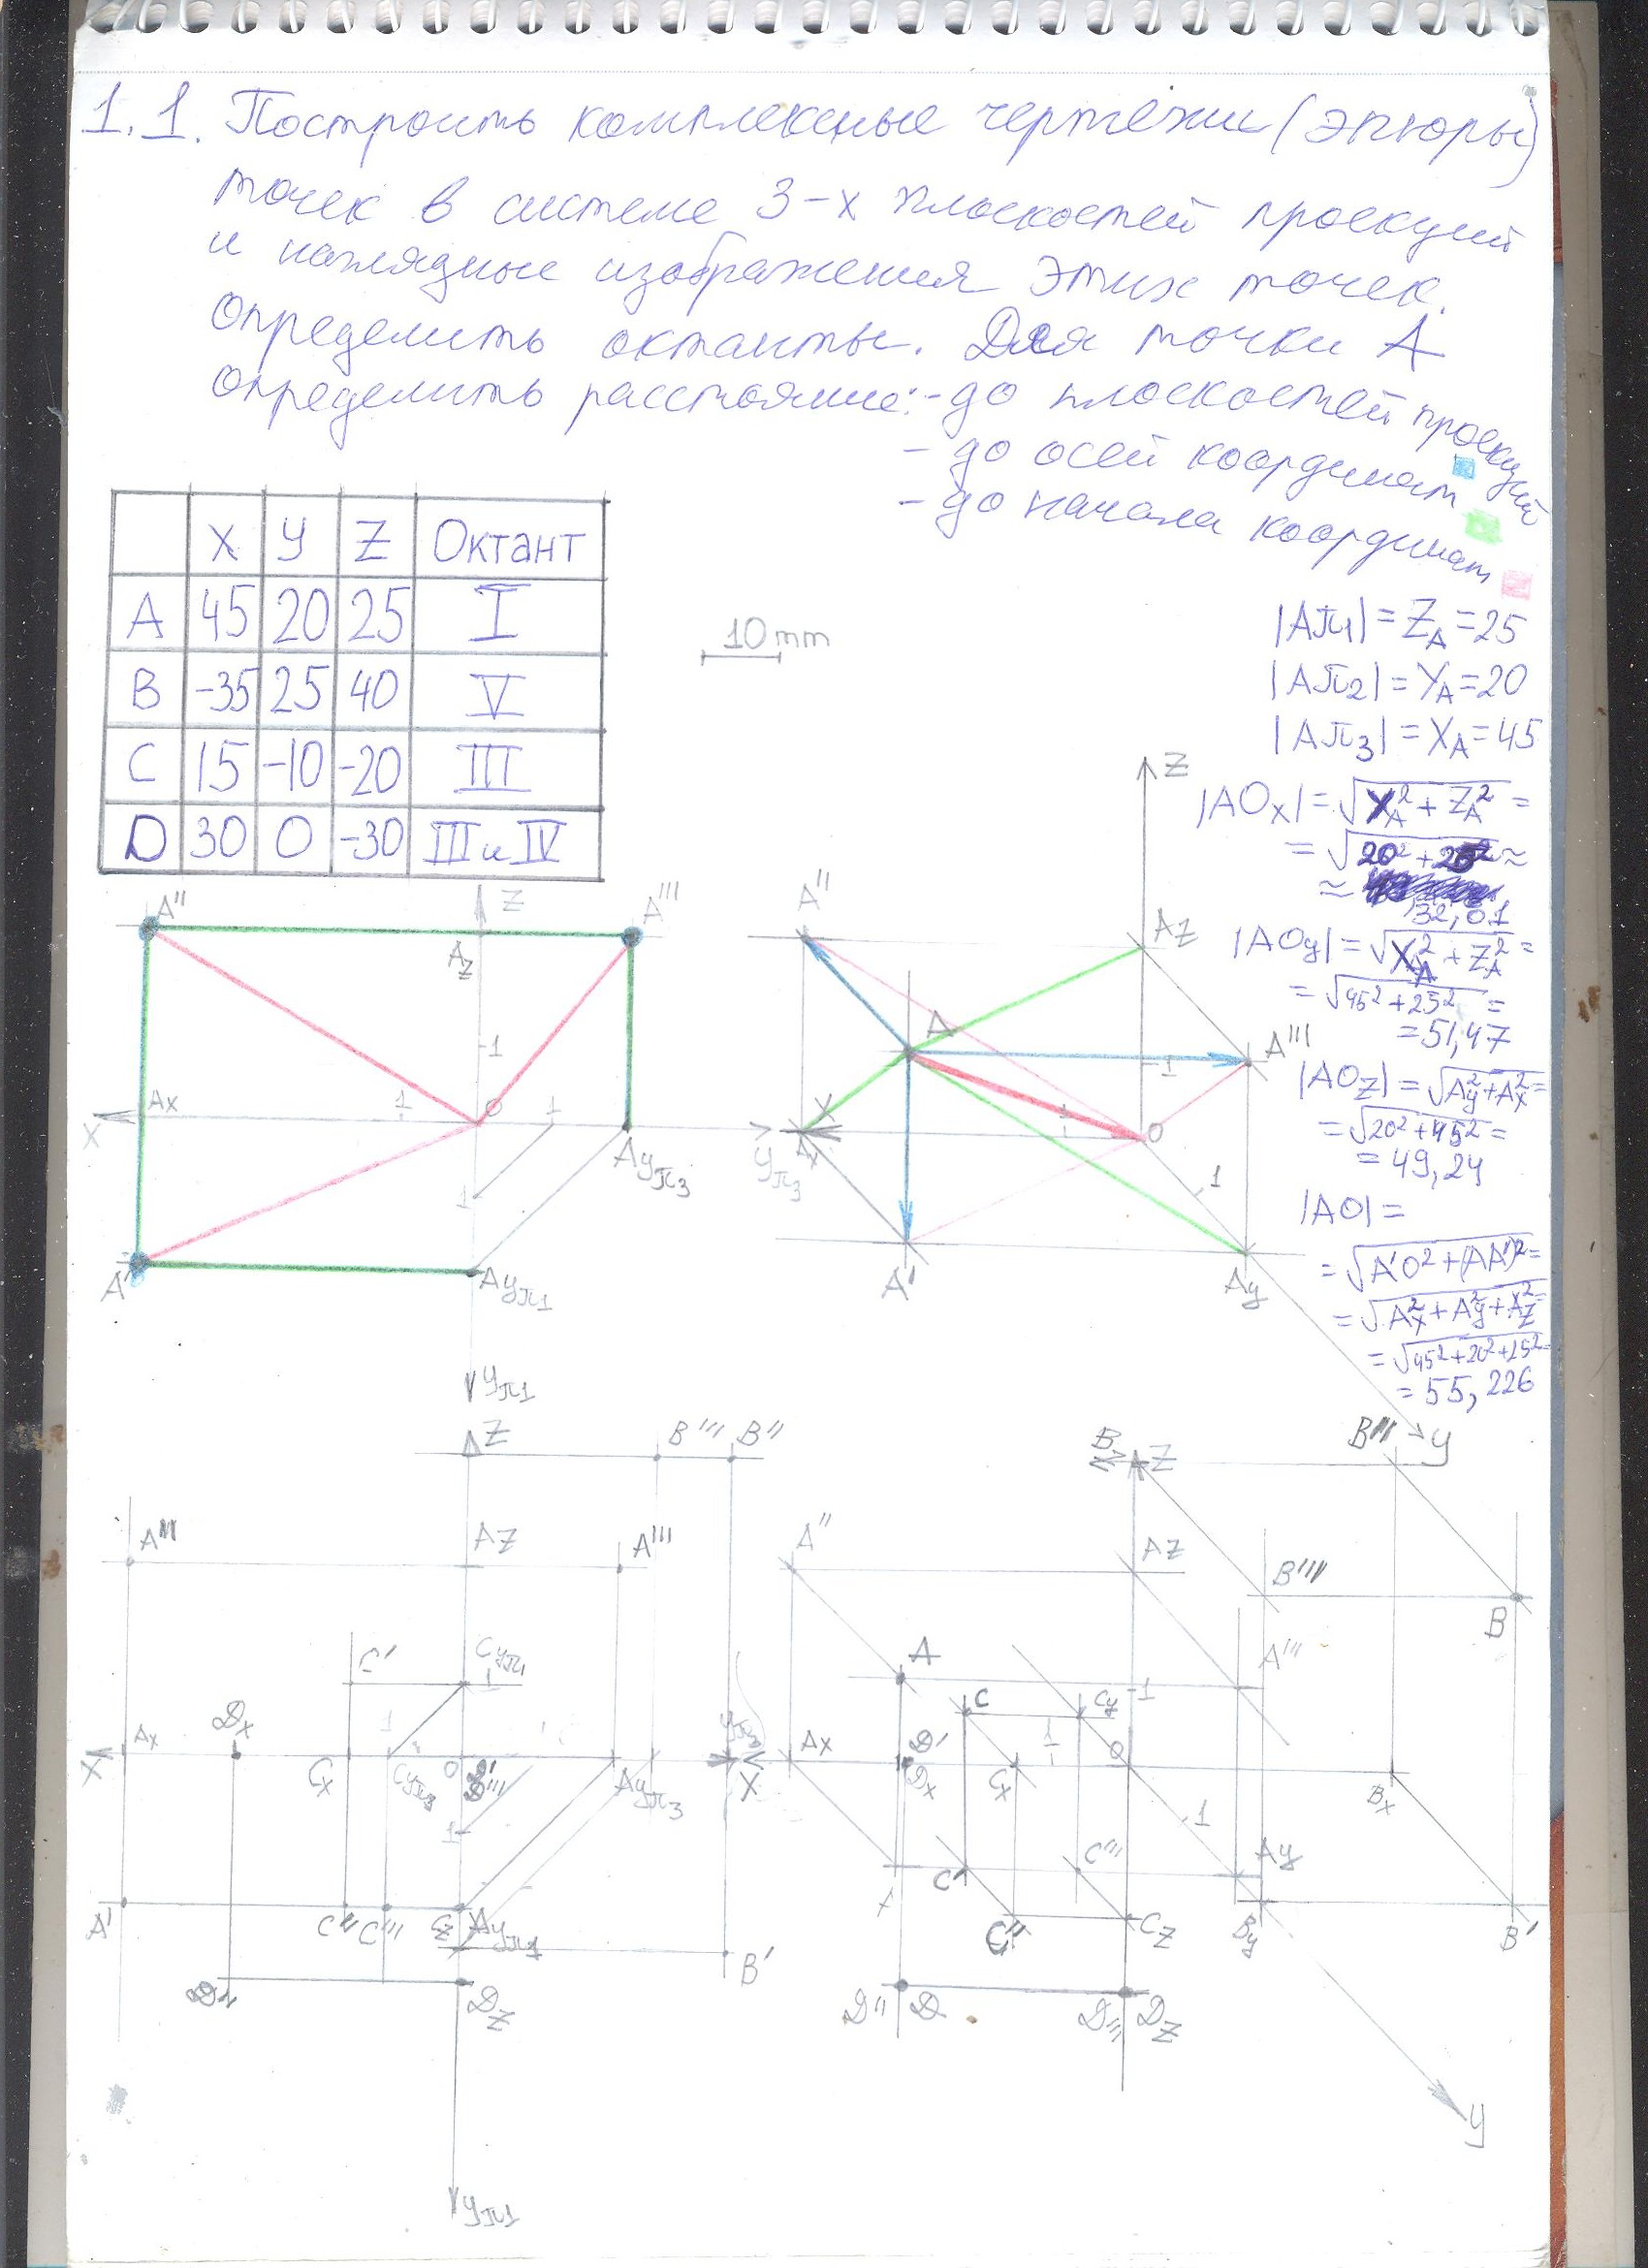 1.1. Построить комплексные чертежи (эпюры)
точек в системе 3-х плоскостей проекций
и наглядные изображения этих точек.
Определить октанты. Для точки А
определить расстояние: - до плоскостей проекций
- до осей координат
- до начала координат
X Y Z Октант
A 45 20 25 I
B -35 25 40 V
C 15 -10 -20 III
D 30 0 -30 III и IV
10 mm
|Aπ1| = ZA = 25
|Aπ2| = YA = 20
|Aπ3| = XA = 45
|AOx| = √XA² + ZA² =
= √20² + 25² ≈
≈ 32,01
|AOy| = √XA² + ZA² =
= √45² + 25² =
= 51,47
|AOz| = √Ay² + Ax² =
= √20² + 45² =
= 49,24
|AO| =
= √A'O² + (AA')² =
= √Ax² + Ay² + Az²
= √45² + 20² + 25² =
= 55,226
A'' Z A'''
Az
1
Ax 1 O 1
X Ayπ3 Yπ3
1
A' Ayπ1
Yπ1
Z
A'' Az
A A'''
1
X Ax 1 O
1
A' Ay
Y
Z B''' B''
A'' Az A'''
C' Cyπ1
1
Dx
X Ax Cx 1 Cyπ3 O D''' 1 Ayπ3 Yπ3
1
A' C'' C''' Cz Ayπ1
B'
D'' Dz
Yπ1
Bz Z B''
A'' Az B''' B
A A'''
C Cy 1
X Ax D' Dx Cx 1 O Bx
1
C' C''' Ay
C'' Cz By B'
D'' D D''' Dz
Y